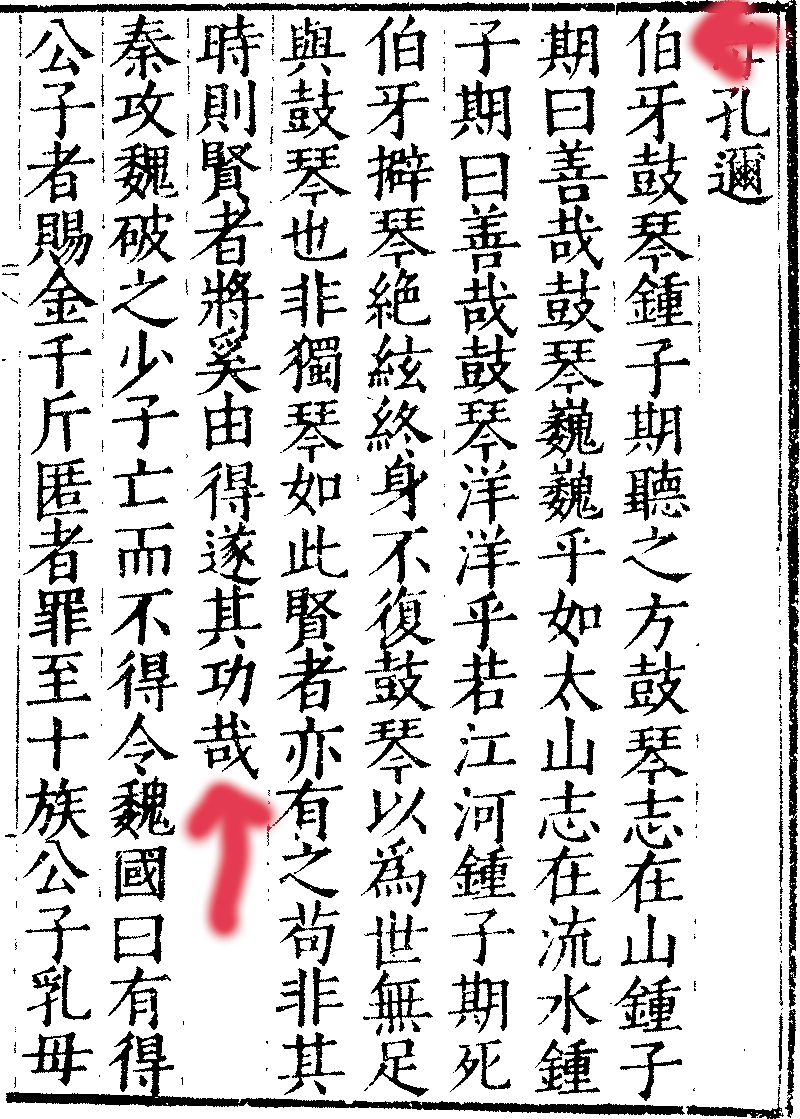 孔邇
伯牙鼓琴鍾子期聽之方鼓琴志在山鍾子
期曰善哉鼓琴巍巍乎如太山志在流水鍾
子期曰善哉鼓琴洋洋乎若江河鍾子期死
伯牙擗琴絶絃終身不復鼓琴以爲世無足
與鼓琴也非獨琴如此賢者亦有之苟非其
時則賢者將奚由得遂其功哉
秦攻魏破之少子亡而不得令魏國曰有得
公子者賜金千斤匿者罪至十族公子乳母